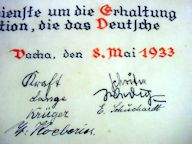 dienste um die Erhaltung
tion, die das Deutsche
Vacha, den 8. Mai 1933
Kraft
Lange
Krüger
E. Schuchardt